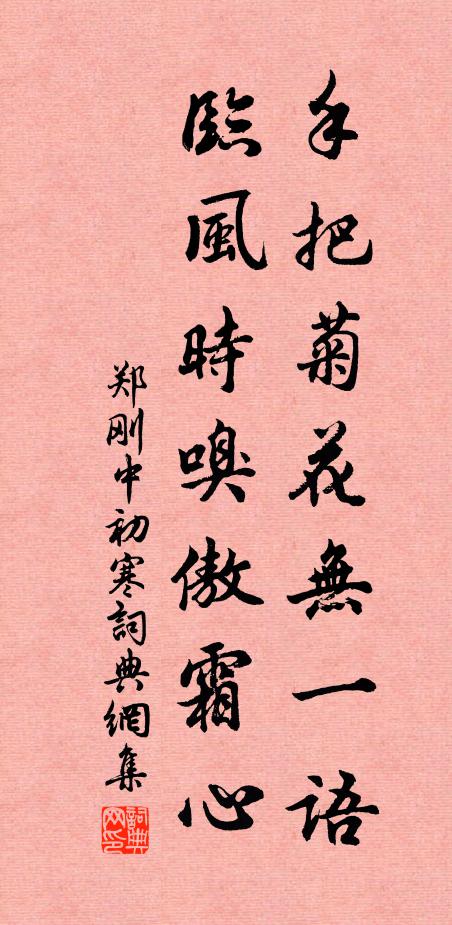 手把菊花無一語
臨風時嗅傲霜心
郑刚中初寒詞典網集
詞典网印